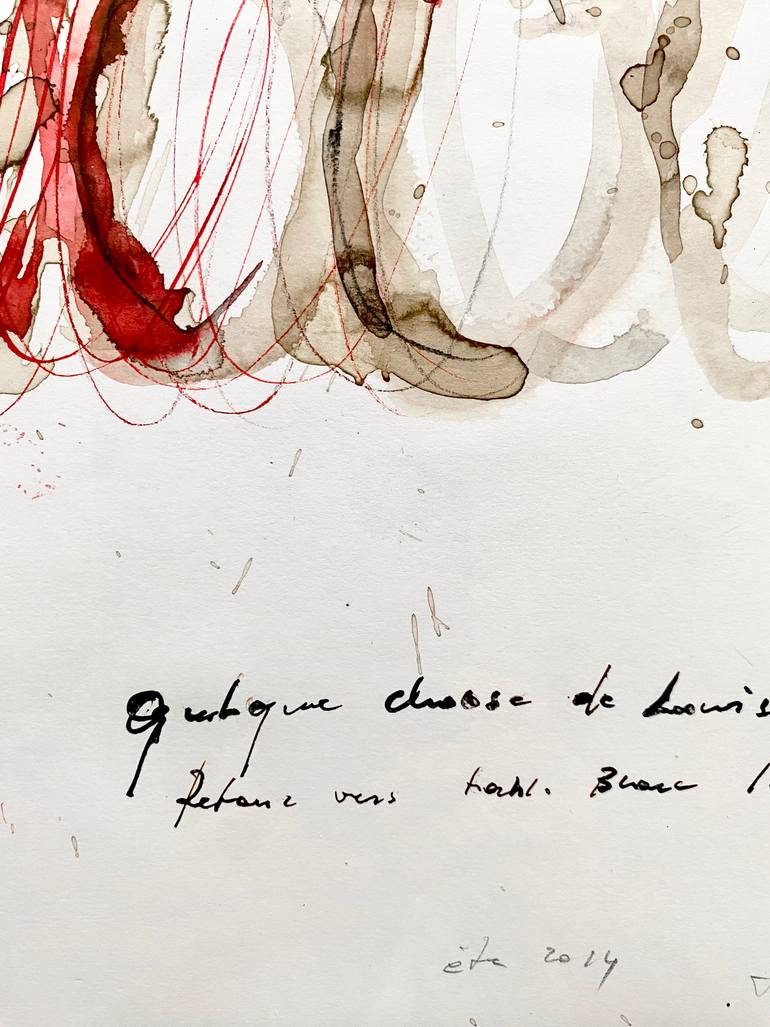 Quelque choose de Louis
Retour vers Blanc
été 2014